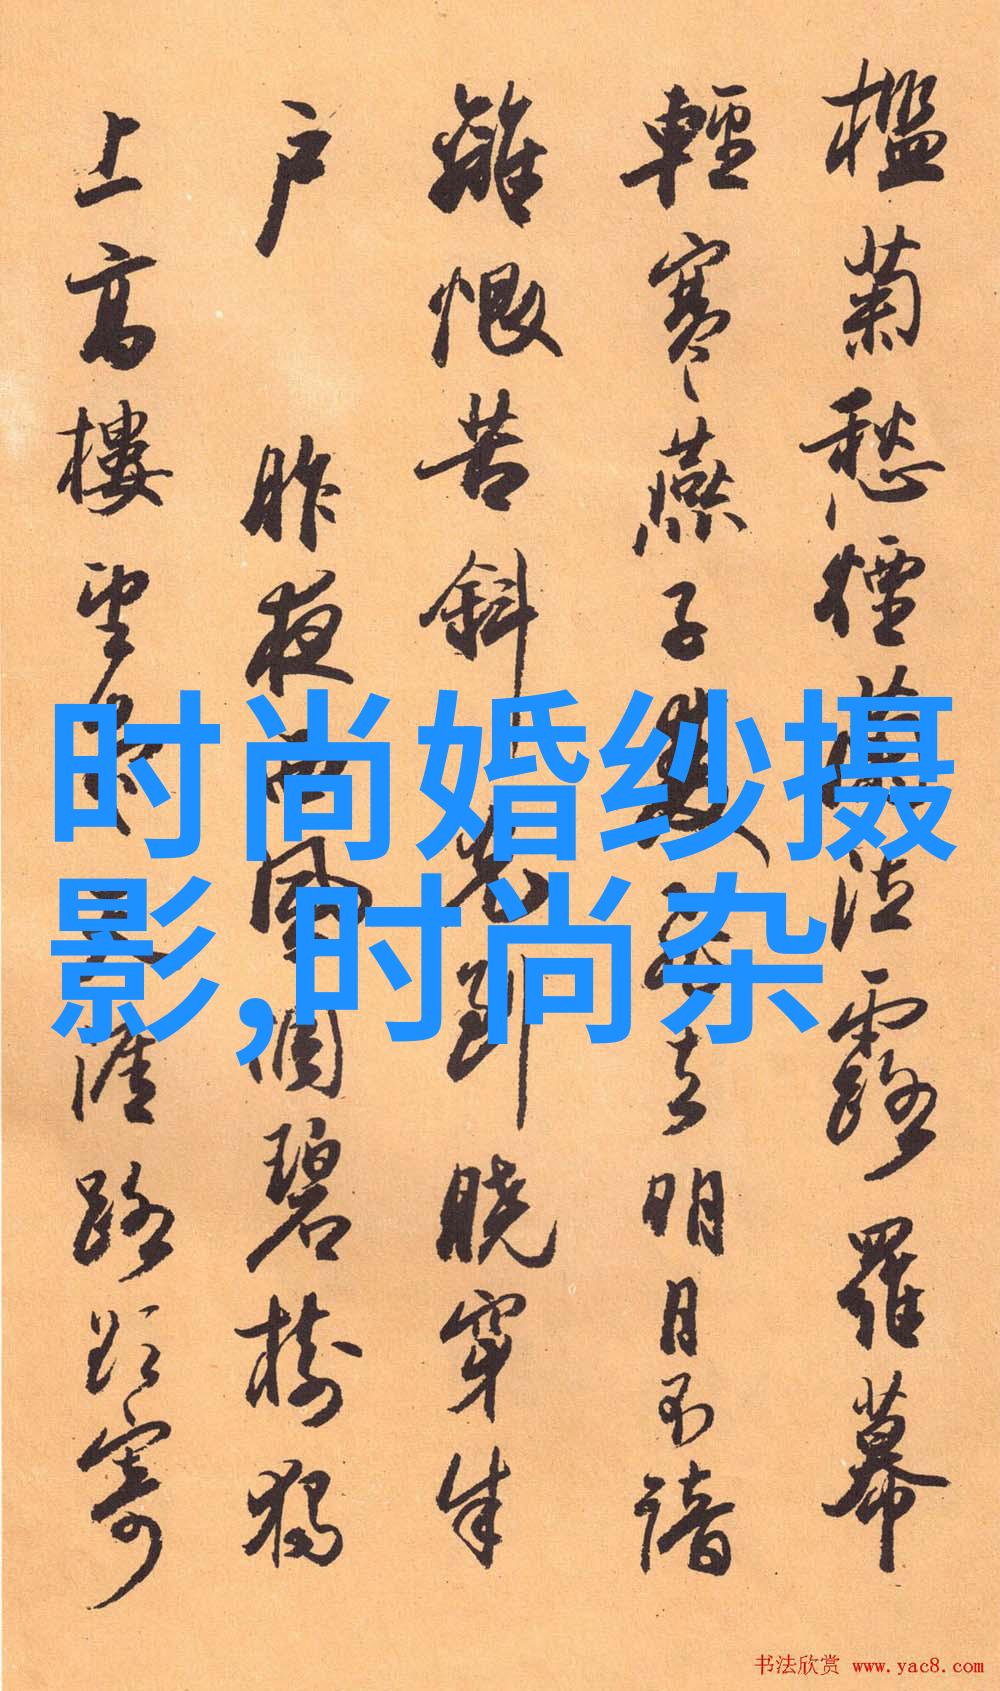 檻菊愁煙蘭泣露羅幕
輕寒燕子雙飛去明月不諳
離恨苦斜光到曉穿朱
户 昨夜西風凋碧樹獨
上高樓望盡天涯路欲寄
时尚婚纱摄
影,时尚杂
书法欣赏 www.yac8.com